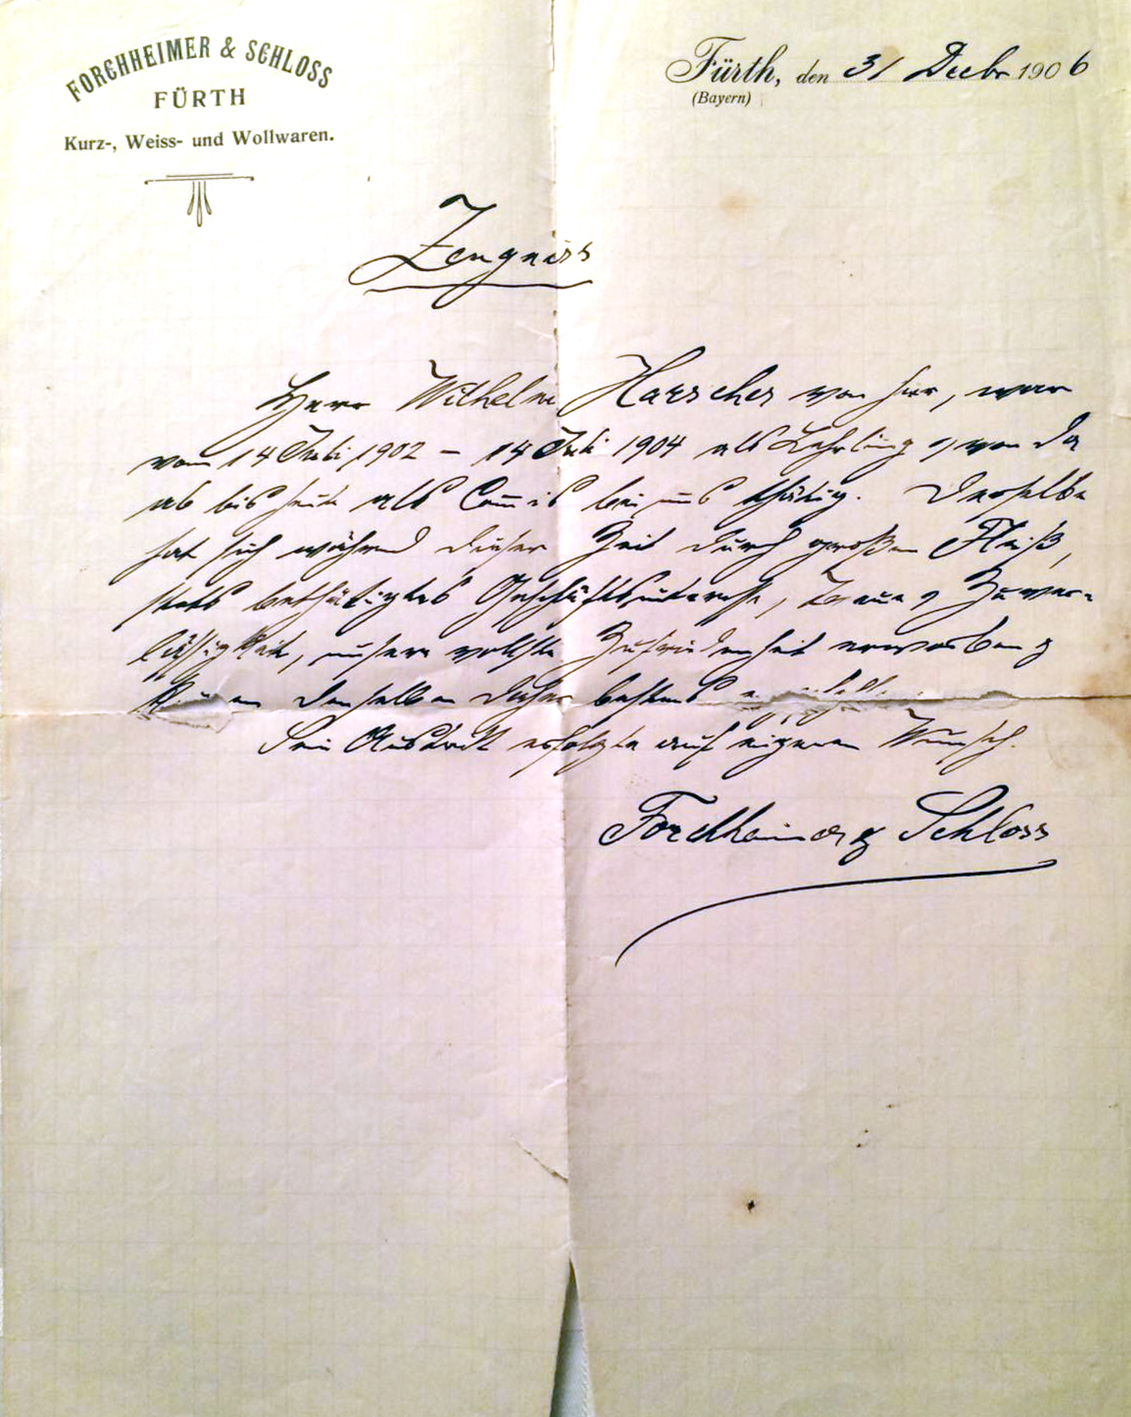 FORCHHEIMER & SCHLOSS
FÜRTH
Kurz-, Weiss- und Wollwaren.
Fürth, den 31 Decbr 1906
(Bayern)
Zeugniss
Herr Wilhelm Harscher von hier, war
vom 14 Juli 1902 – 14 Juli 1904 als Lehrling & von da
ab bis heute als Commis bei uns thätig. Derselbe
hat sich während dieser Zeit durch großen Fleiß,
stets bethätigtes Geschäftsinteresse, Treue & Zuver-
lässigkeit, unsere vollste Zufriedenheit erworben &
können denselben daher bestens empfehlen.
Sein Austritt erfolgte auf eigenen Wunsch.
Forchheimer & Schloss